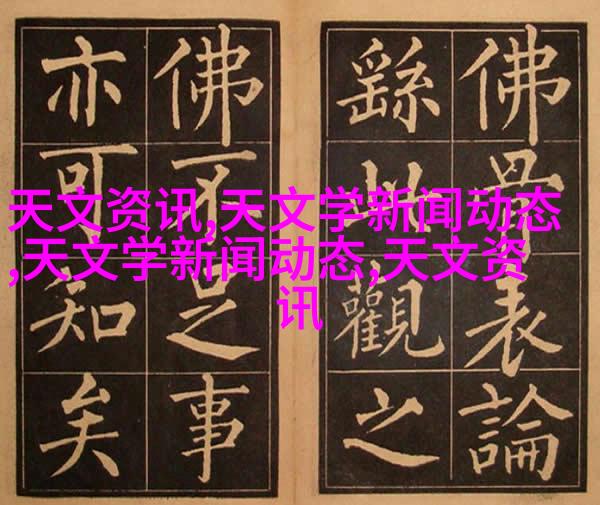 天文资讯,天文学新闻动态
,天文学新闻动态,天文资
讯
佛骨表論
繇此觀之
佛不足事
亦可知矣